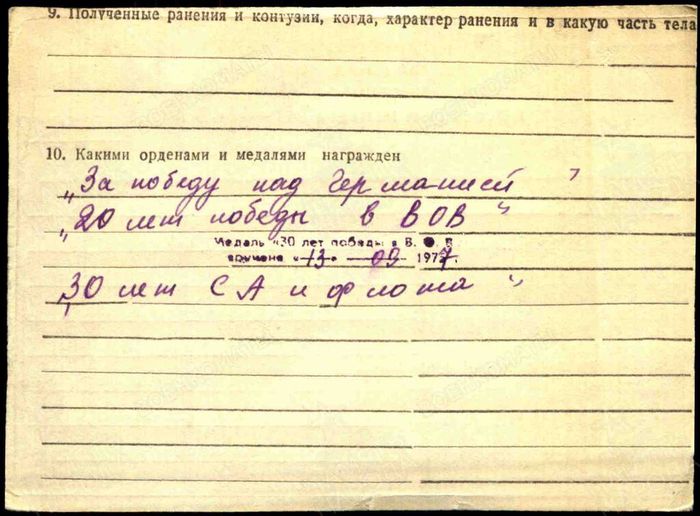 9. Полученные ранения и контузии, когда, характер ранения и в какую часть тела
10. Какими орденами и медалями награжден
„За победу над Германией"
„20 лет победы в ВОВ"
Медаль «30 лет победы в В. О. В.
вручена «13» 09 1977 г.
„30 лет СА и флота"